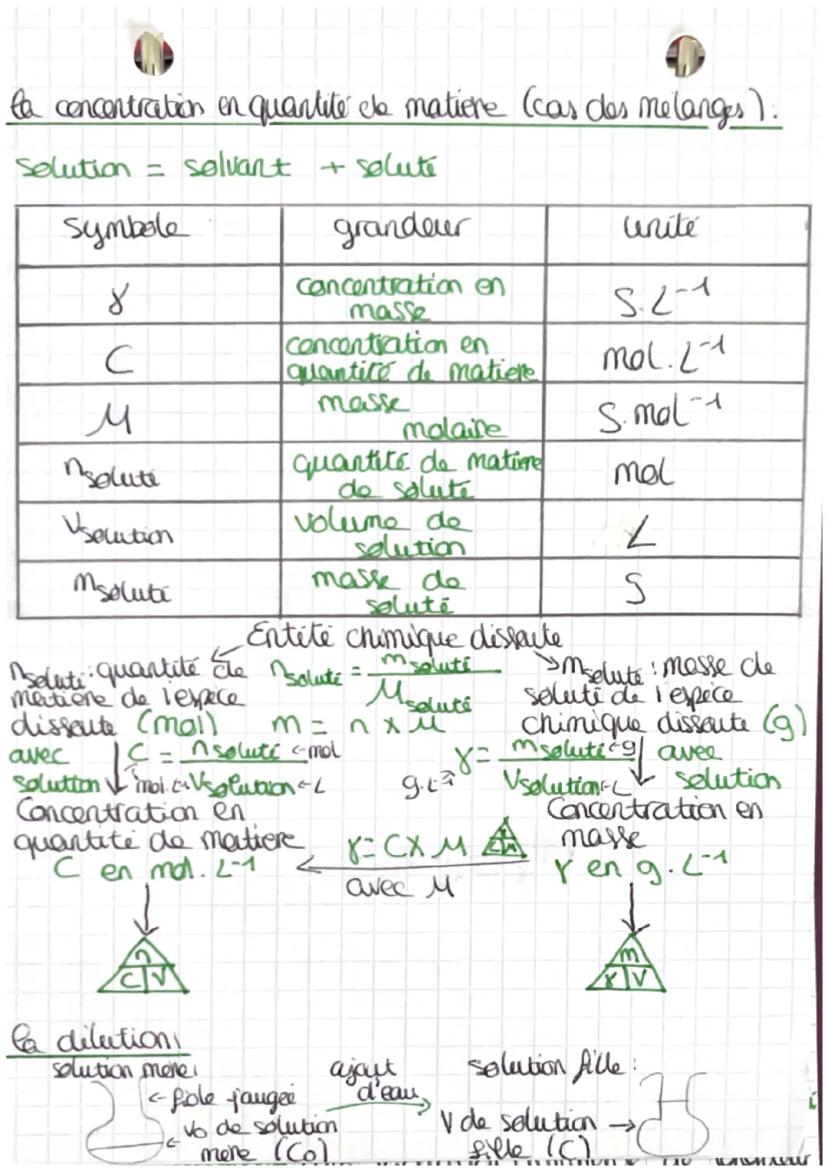 la concentration en quantité de matière (cas des mélanges) :
solution = solvant + soluté
symbole grandeur unité
γ concentration en masse g.L⁻¹
C concentration en quantité de matière mol.L⁻¹
M masse molaire g.mol⁻¹
nsoluté quantité de matière de soluté mol
Vsolution volume de solution L
msoluté masse de soluté g
Entité chimique dissoute
nsoluté : quantité de matière de l'espèce dissoute (mol)
nsoluté = msoluté / Msoluté
m = n x M
msoluté : masse de soluté de l'espèce chimique dissoute (g)
avec solution
C = nsoluté ← mol / Vsolution ← L
γ = msoluté ← g / Vsolution ← L
avec solution
Concentration en quantité de matière
C en mol.L⁻¹
γ = C x M
avec M
Concentration en masse
γ en g.L⁻¹
n
C V
m
γ V
la dilution :
solution mère :
ajout d'eau
solution fille :
← fiole jaugée
← V0 de solution mère (C0)
V de solution fille (C) →